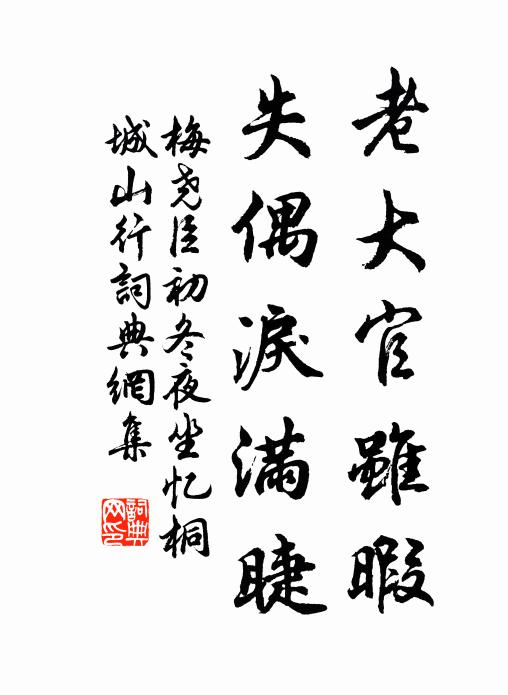 老大官雖暇
失偶淚滿睫
梅尧臣初冬夜坐忆桐
城山行詞典網集
詞典
网印